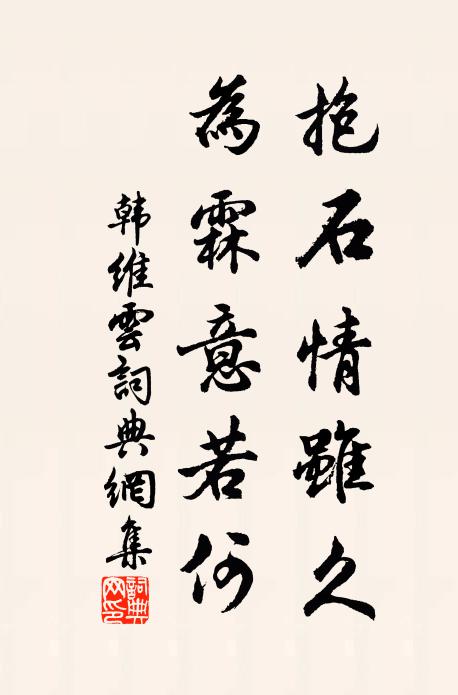 抱石情雖久
為霖意若何
韩維雲詞典網集
詞典网印